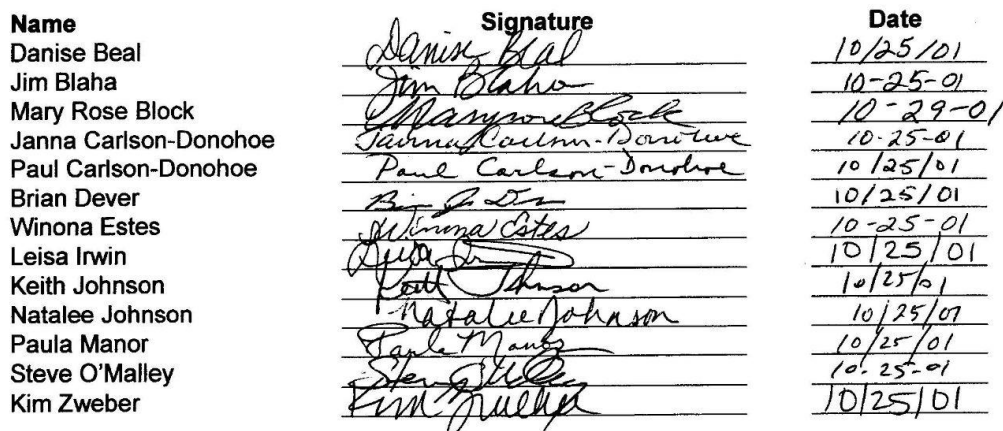 Name Signature Date
Danise Beal Danise Beal 10/25/01
Jim Blaha Jim Blaha 10-25-01
Mary Rose Block Maryrose Block 10-29-01
Janna Carlson-Donohoe Janna Carlson-Donohoe 10-25-01
Paul Carlson-Donohoe Paul Carlson-Donohoe 10/25/01
Brian Dever 10/25/01
Winona Estes Winona Estes 10-25-01
Leisa Irwin Leisa 10/25/01
Keith Johnson Keith Johnson 10/25/01
Natalee Johnson Natalee Johnson 10/25/01
Paula Manor Paula Manor 10/25/01
Steve O'Malley Steve O'Malley 10-25-01
Kim Zweber Kim Zweber 10/25/01